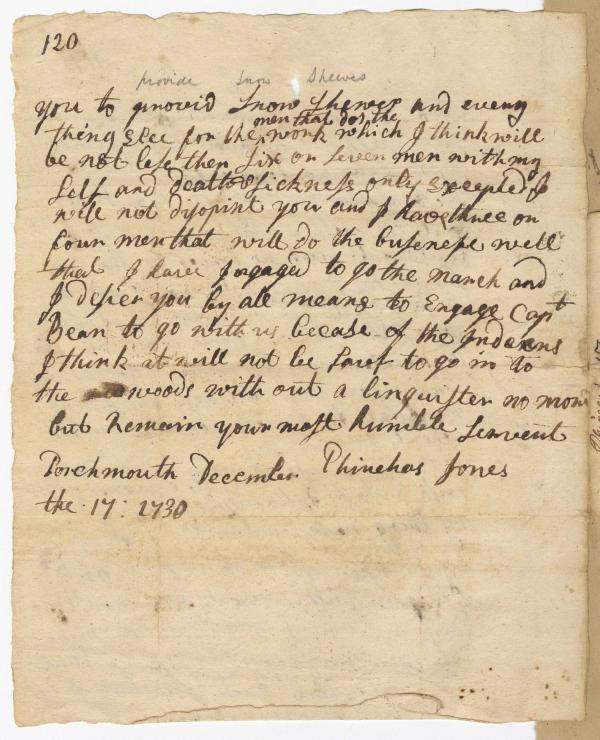 120
provide Snow Shewes
you to provid Snow Shewes and every
thing Elce for the men that dos the work which I think will
be not less then six or seven men with my
self and death & sickness only Excepted I
will not disopint you and I have three or
four men that will do the buseness well
that I have Ingaged to go the march and
I desier you by all means to Engage Capt
Bean to go with us becase of the Indexns
I think it will not be saef to go in to
the woods with out a linguister no more
but Remain your most humble Servent
Porchmouth December Phinehas Jones
the 17: 1730